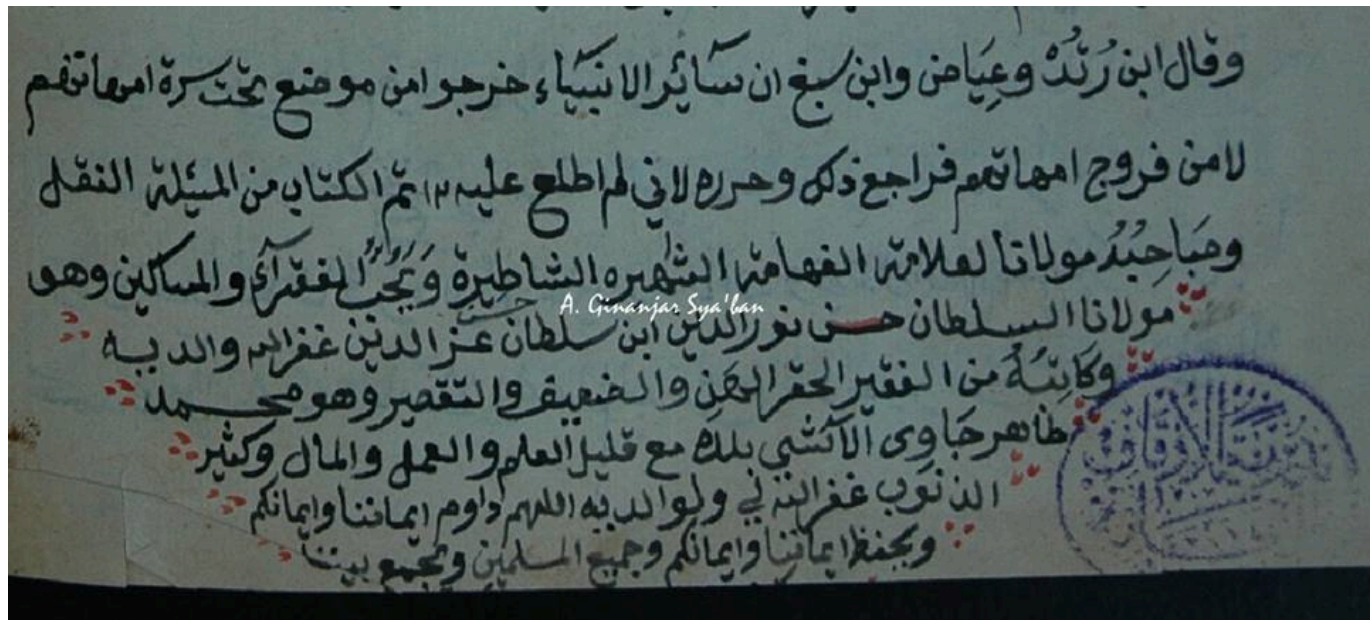 وقال ابن رُشْدٌ وعِيَاض وابن سبع ان سَائِر الانبياء خرجوا من موضع تحت سرة امهاتهم
لا من فروج امهاتهم فراجع ذلك وحرره لاني لم اطلع عليه تم الكتاب من المسئلة النقل
ومباحث مولانا لعلامة الفهامة الشهيره الشاطرة ويحب الفقراء والمساكين وهو
A. Ginanjar Sya'ban
مولانا السلطان حسن نور الدين ابن سلطان عز الدين غفر الله والديه
وكاتبه من الفقير الحقر المهن والضعيف والتقصير وهو محمد
طاهر جاوى الآتشي بلده مع قليل العلم والعمل والمال وكثير
الذنوب غفر الله لي ولوالديه اللهم داوم ايماننا وايمانكم
ويحفظ ايماننا وايمانكم وجميع المسلمين ويجمع بيننا